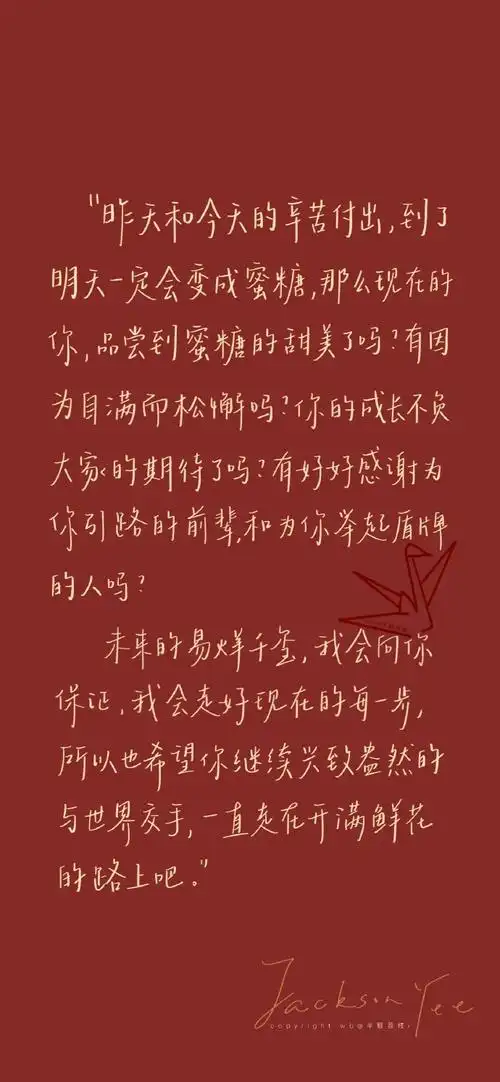 "昨天和今天的辛苦付出,到了
明天一定会变成蜜糖,那么现在的
你,品尝到蜜糖的甜美了吗?有因
为自满而松懈吗?你的成长不负
大家的期待了吗?有好好感谢为
你引路的前辈,和为你举起盾牌
的人吗?
未来的易烊千玺,我会向你
保证,我会走好现在的每一步,
所以也希望你继续兴致盎然的
与世界交手,一直走在开满鲜花
的路上吧。"
Jackson Yee
copyright wb@